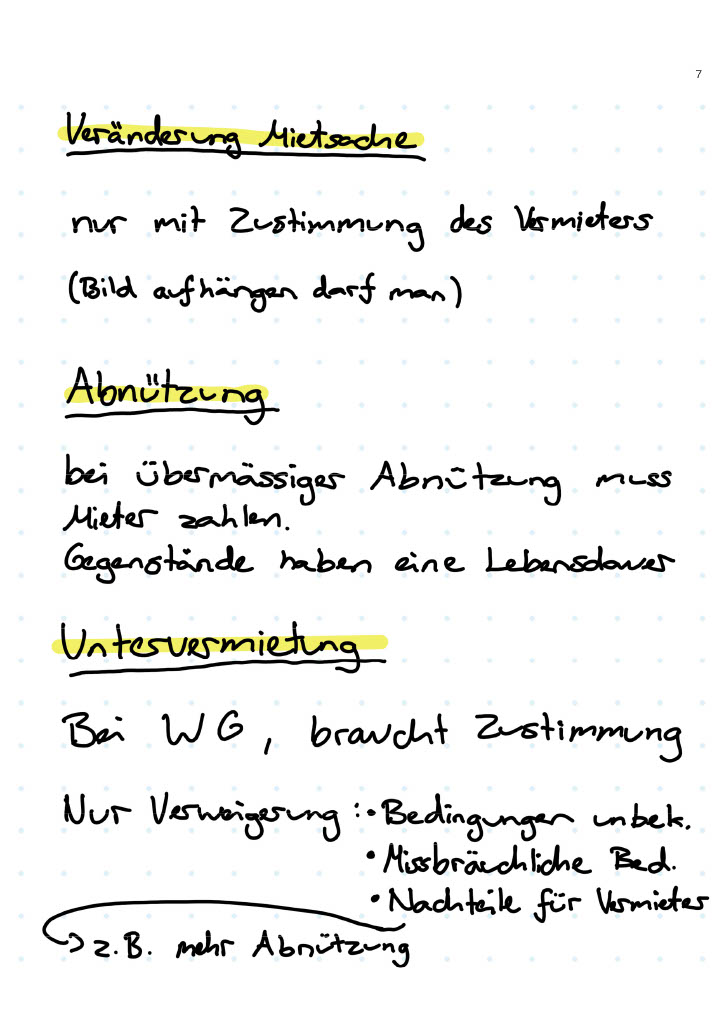 7
Veränderung Mietsache
nur mit Zustimmung des Vermieters
(Bild aufhängen darf man)
Abnützung
bei übermässiger Abnützung muss
Mieter zahlen.
Gegenstände haben eine Lebensdauer
Untervermietung
Bei WG, braucht Zustimmung
Nur Verweigerung : • Bedingungen unbek.
• Missbräuchliche Bed.
• Nachteile für Vermieter
→ z.B. mehr Abnützung